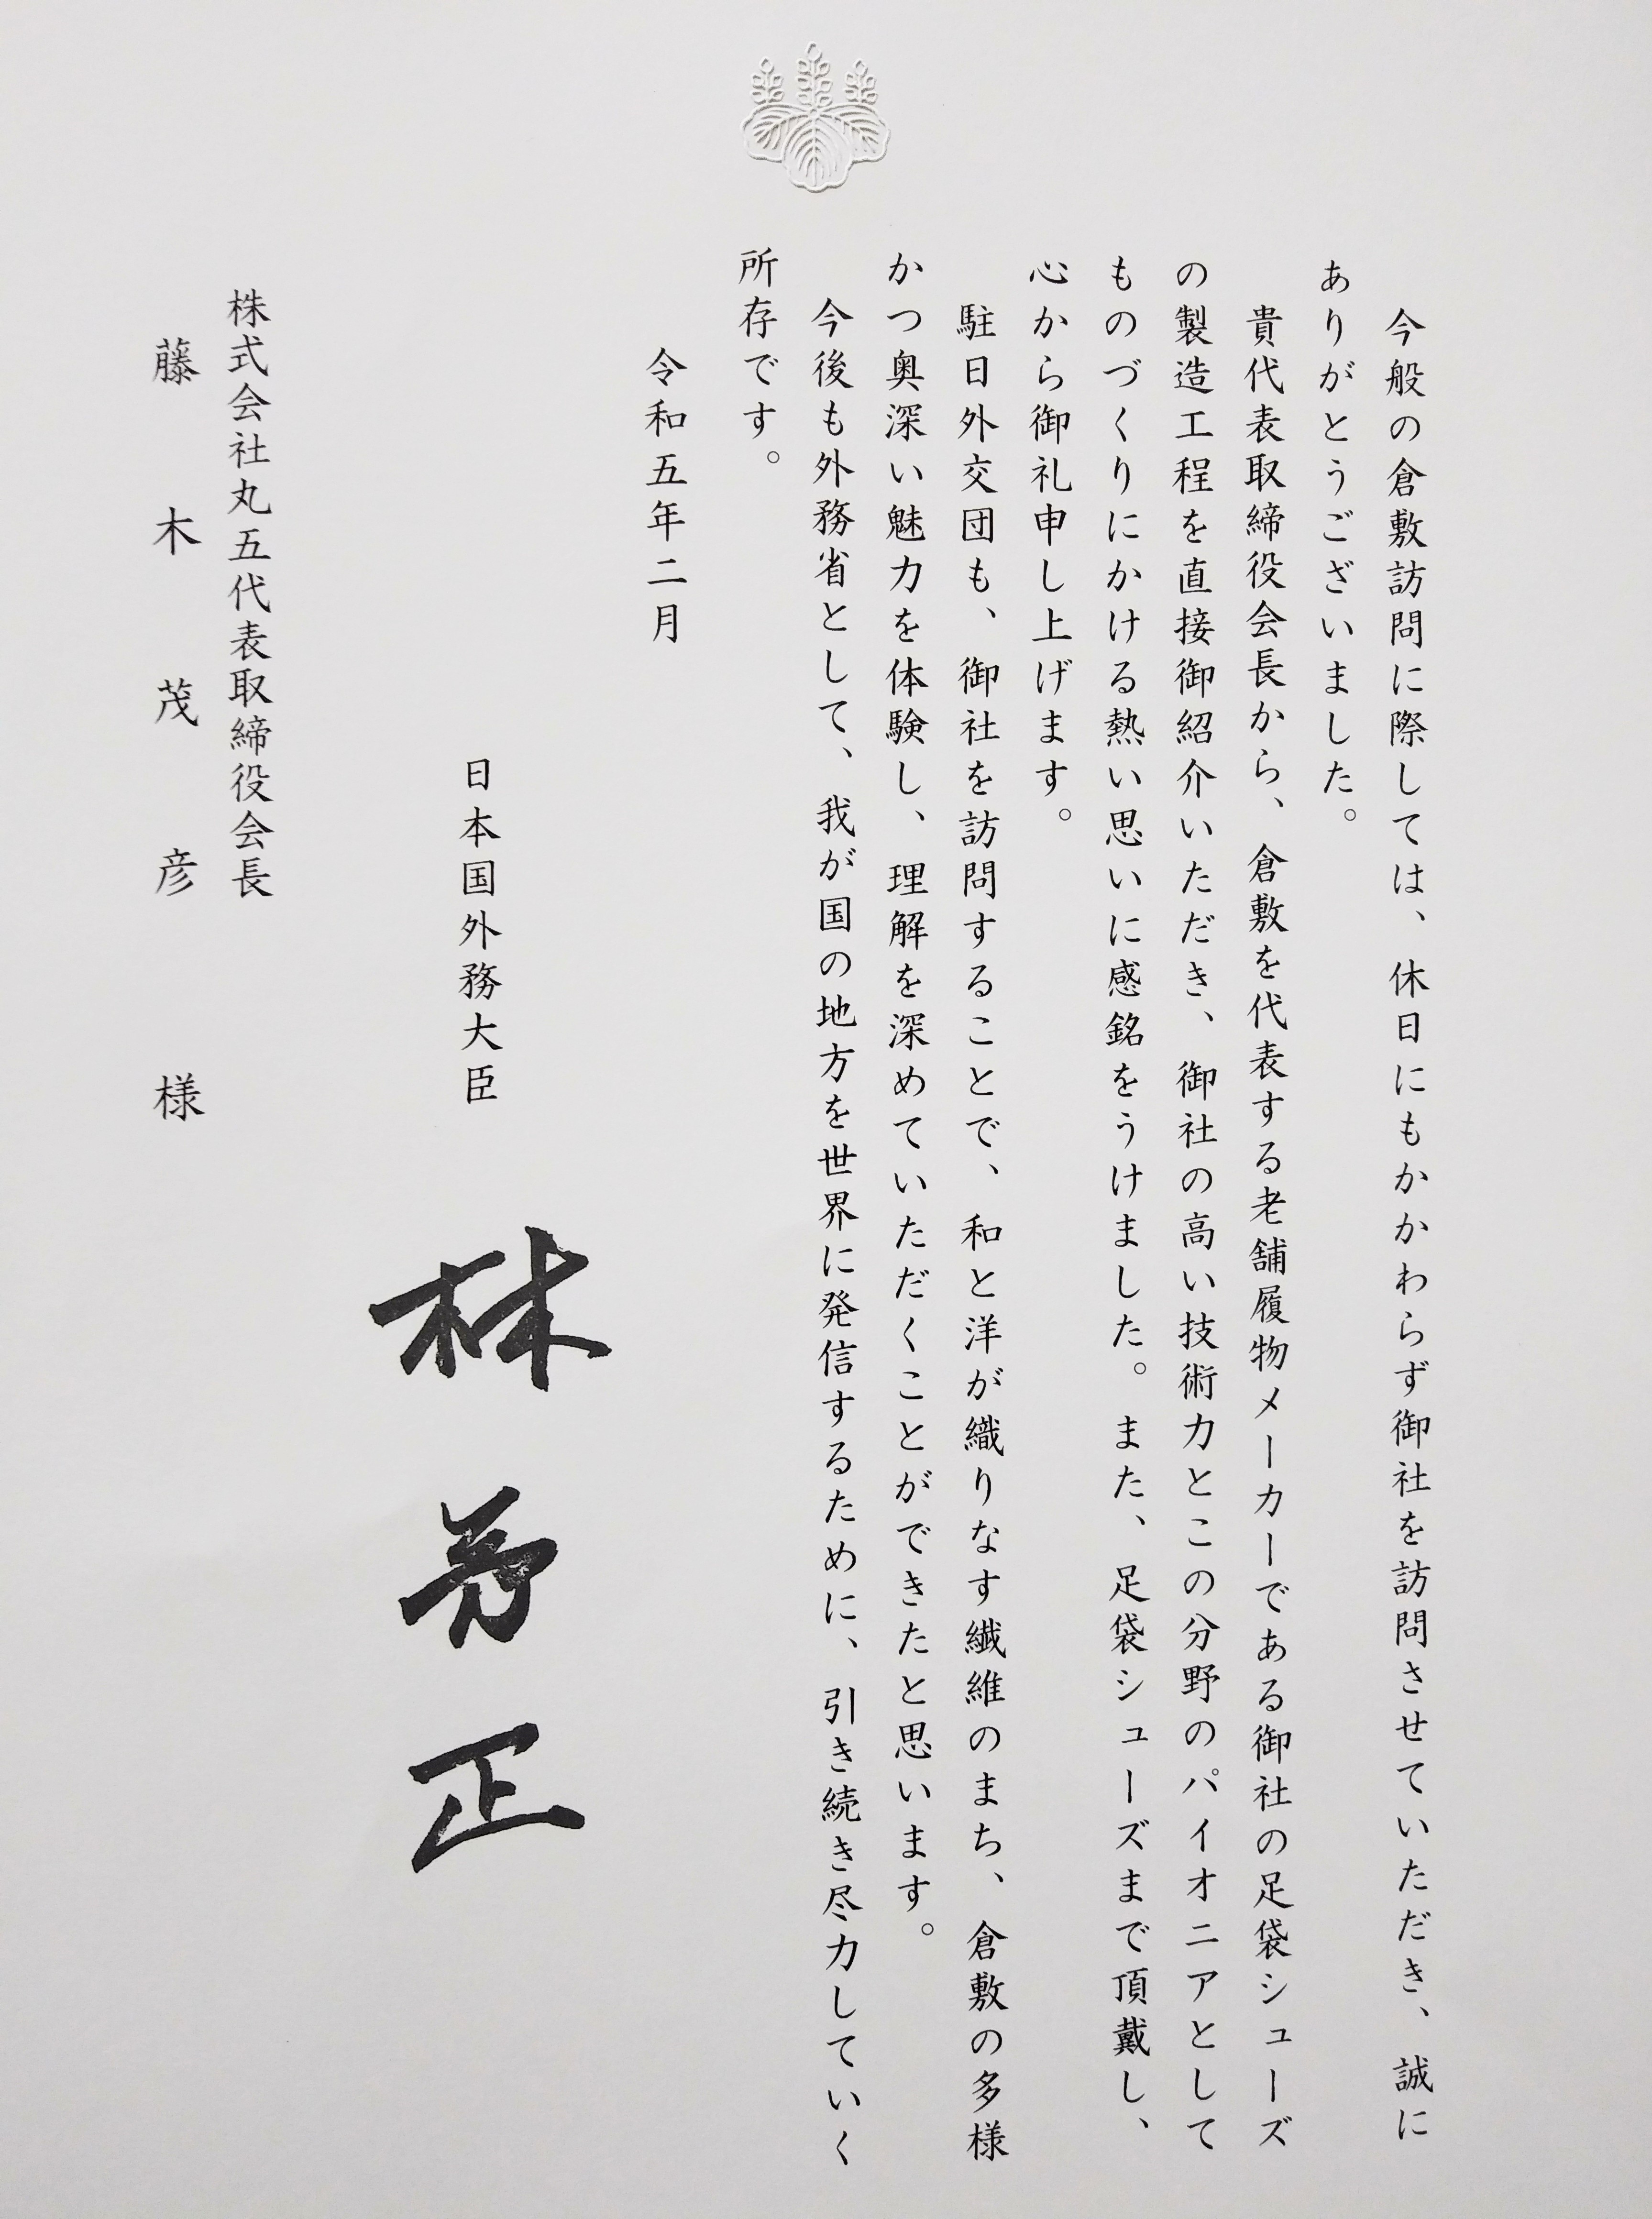 今般の倉敷訪問に際しては、休日にもかかわらず御社を訪問させていただき、誠に
ありがとうございました。
貴代表取締役会長から、倉敷を代表する老舗履物メーカーである御社の足袋シューズ
の製造工程を直接御紹介いただき、御社の高い技術力とこの分野のパイオニアとして
ものづくりにかける熱い思いに感銘をうけました。また、足袋シューズまで頂戴し、
心から御礼申し上げます。
駐日外交団も、御社を訪問することで、和と洋が織りなす繊維のまち、倉敷の多様
かつ奥深い魅力を体験し、理解を深めていただくことができたと思います。
今後も外務省として、我が国の地方を世界に発信するために、引き続き尽力していく
所存です。
令和五年二月
日本国外務大臣 林芳正
株式会社丸五代表取締役会長
藤木茂彦 様